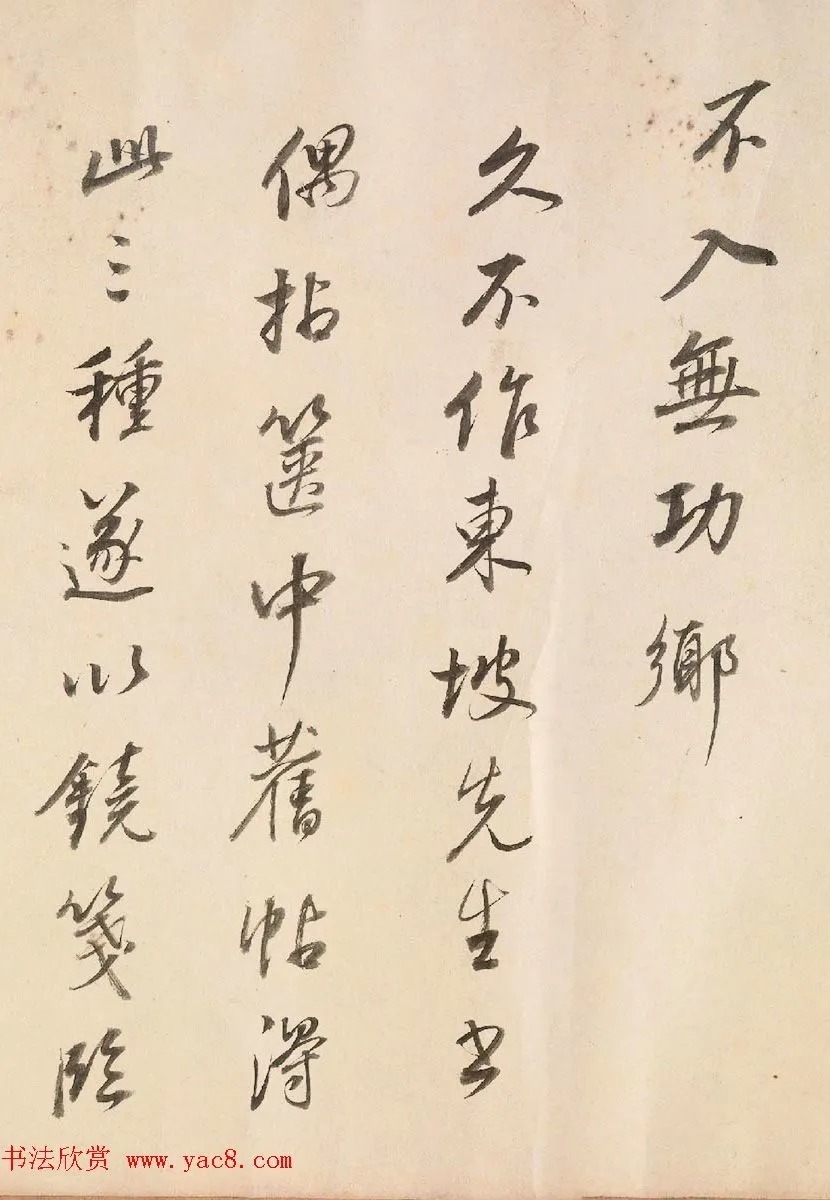 不入無功鄉
久不作東坡先生書
偶拈篋中舊帖得
此三種遂以鏡箋臨
书法欣赏 www.yac8.com